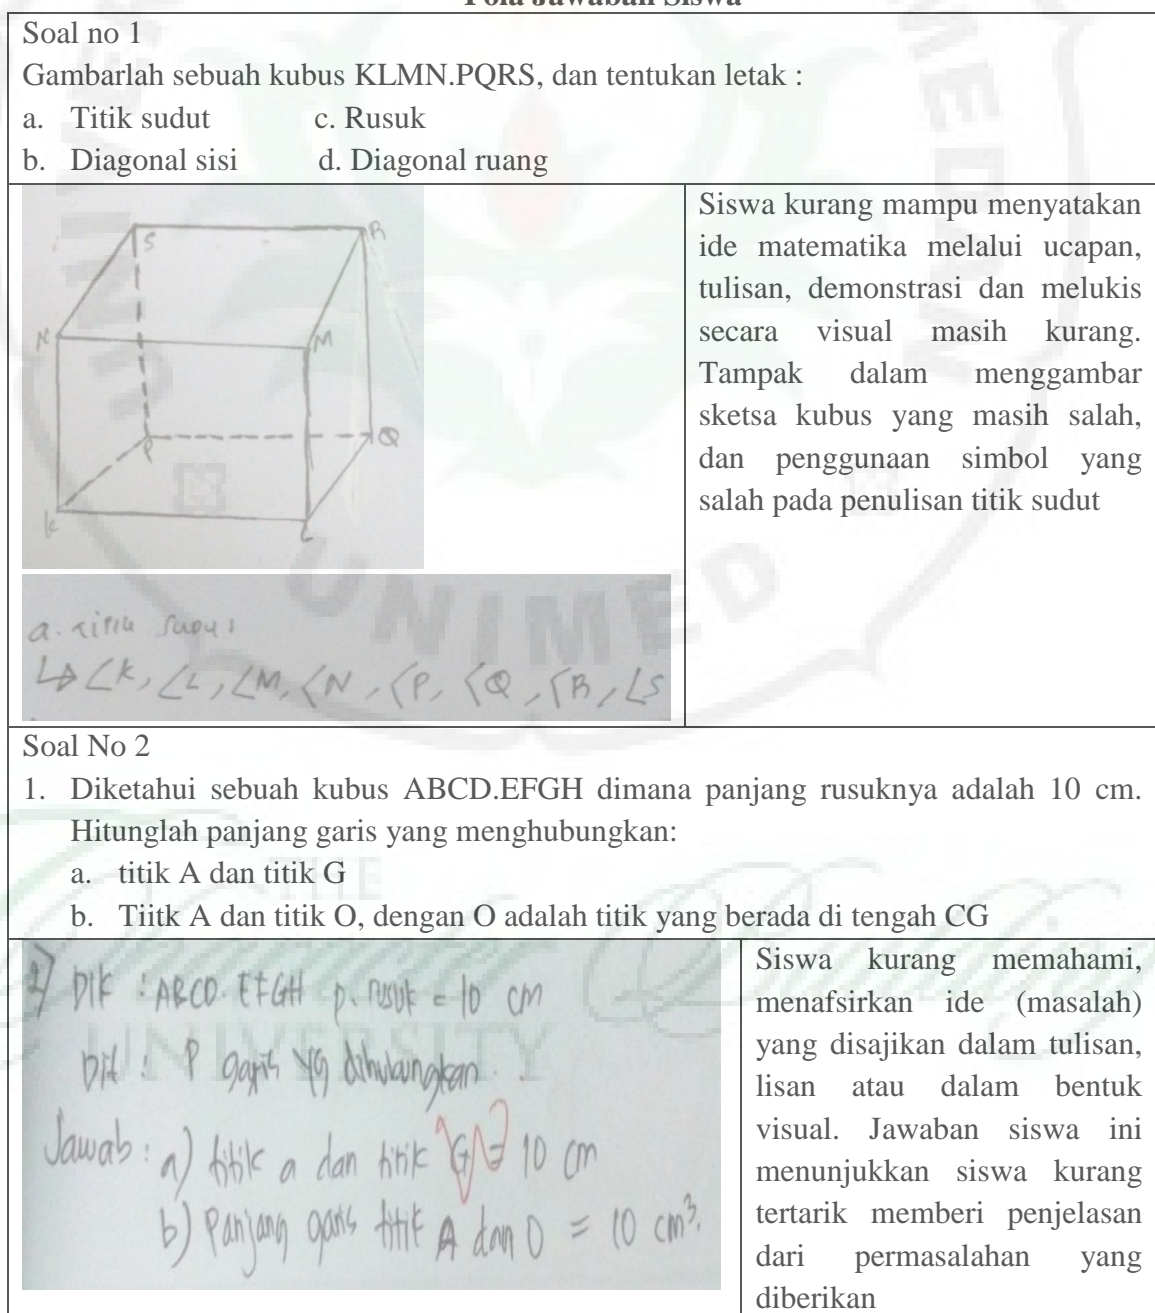 Pola Jawaban Siswa
Soal no 1
Gambarlah sebuah kubus KLMN.PQRS, dan tentukan letak :
a. Titik sudut c. Rusuk
b. Diagonal sisi d. Diagonal ruang
S R
N M
P Q
K L
a. titik sudut
↳ ∠K, ∠L, ∠M, ∠N, ∠P, ∠Q, ∠R, ∠S
Siswa kurang mampu menyatakan
ide matematika melalui ucapan,
tulisan, demonstrasi dan melukis
secara visual masih kurang.
Tampak dalam menggambar
sketsa kubus yang masih salah,
dan penggunaan simbol yang
salah pada penulisan titik sudut
Soal No 2
1. Diketahui sebuah kubus ABCD.EFGH dimana panjang rusuknya adalah 10 cm.
Hitunglah panjang garis yang menghubungkan:
a. titik A dan titik G
b. Tiitk A dan titik O, dengan O adalah titik yang berada di tengah CG
2) Dik : ABCD.EFGH p. rusuk = 10 cm
Dit : P garis yg dihubungkan.
Jawab : a) titik a dan titik G = 10 cm
b) Panjang garis titik A dan O = 10 cm³.
Siswa kurang memahami,
menafsirkan ide (masalah)
yang disajikan dalam tulisan,
lisan atau dalam bentuk
visual. Jawaban siswa ini
menunjukkan siswa kurang
tertarik memberi penjelasan
dari permasalahan yang
diberikan
UNIMED
THE
UNIVERSITY